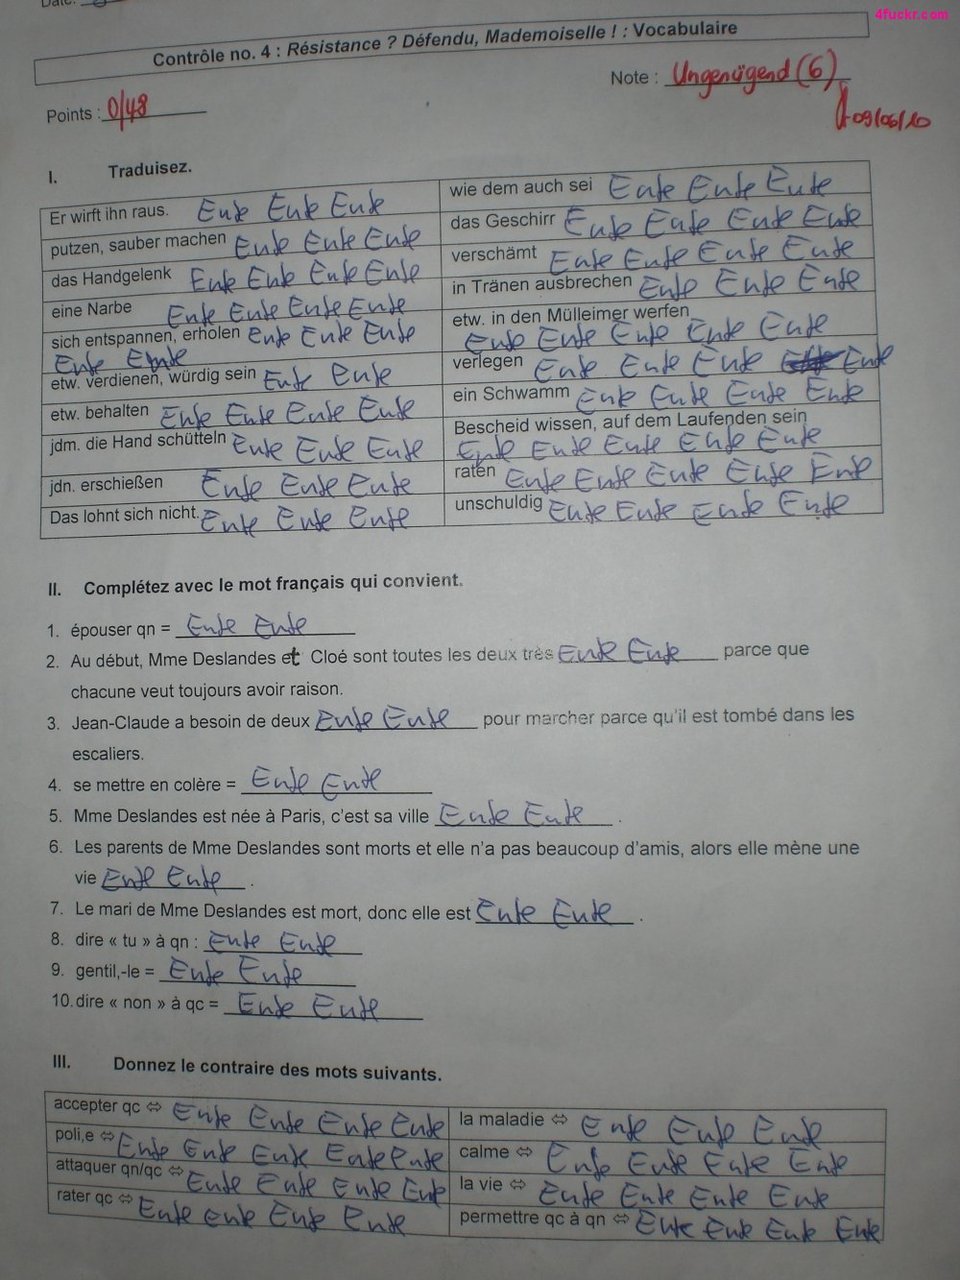 Date:
4fuckr.com
Contrôle no. 4 : Résistance ? Défendu, Mademoiselle ! : Vocabulaire
Points : 0/48
Note : Ungenügend (6)
09/06/10
I. Traduisez.
Er wirft ihn raus. Ente Ente Ente
wie dem auch sei Ente Ente Ente
putzen, sauber machen Ente Ente Ente
das Geschirr Ente Ente Ente Ente
das Handgelenk Ente Ente Ente Ente
verschämt Ente Ente Ente Ente
eine Narbe Ente Ente Ente Ente
in Tränen ausbrechen Ente Ente Ente
sich entspannen, erholen Ente Ente Ente
Ente Ente
etw. in den Mülleimer werfen
Ente Ente Ente Ente Ente
etw. verdienen, würdig sein Ente Ente
verlegen Ente Ente Ente Ente
etw. behalten Ente Ente Ente Ente
ein Schwamm Ente Ente Ente Ente
jdm. die Hand schütteln Ente Ente Ente
Bescheid wissen, auf dem Laufenden sein
Ente Ente Ente Ente Ente
jdn. erschießen Ente Ente Ente
raten Ente Ente Ente Ente Ente
Das lohnt sich nicht. Ente Ente Ente
unschuldig Ente Ente Ente Ente
II. Complétez avec le mot français qui convient.
1. épouser qn = Ente Ente
2. Au début, Mme Deslandes et Cloé sont toutes les deux très Ente Ente parce que
chacune veut toujours avoir raison.
3. Jean-Claude a besoin de deux Ente Ente pour marcher parce qu'il est tombé dans les
escaliers.
4. se mettre en colère = Ente Ente
5. Mme Deslandes est née à Paris, c'est sa ville Ente Ente .
6. Les parents de Mme Deslandes sont morts et elle n'a pas beaucoup d'amis, alors elle mène une
vie Ente Ente .
7. Le mari de Mme Deslandes est mort, donc elle est Ente Ente .
8. dire « tu » à qn : Ente Ente
9. gentil,-le = Ente Ente
10. dire « non » à qc = Ente Ente
III. Donnez le contraire des mots suivants.
accepter qc ⇔ Ente Ente Ente Ente
la maladie ⇔ Ente Ente Ente
poli,e ⇔ Ente Ente Ente Ente Ente
calme ⇔ Ente Ente Ente Ente
attaquer qn/qc ⇔ Ente Ente Ente Ente
la vie ⇔ Ente Ente Ente Ente
rater qc ⇔ Ente ente Ente Ente
permettre qc à qn ⇔ Ente Ente Ente Ente